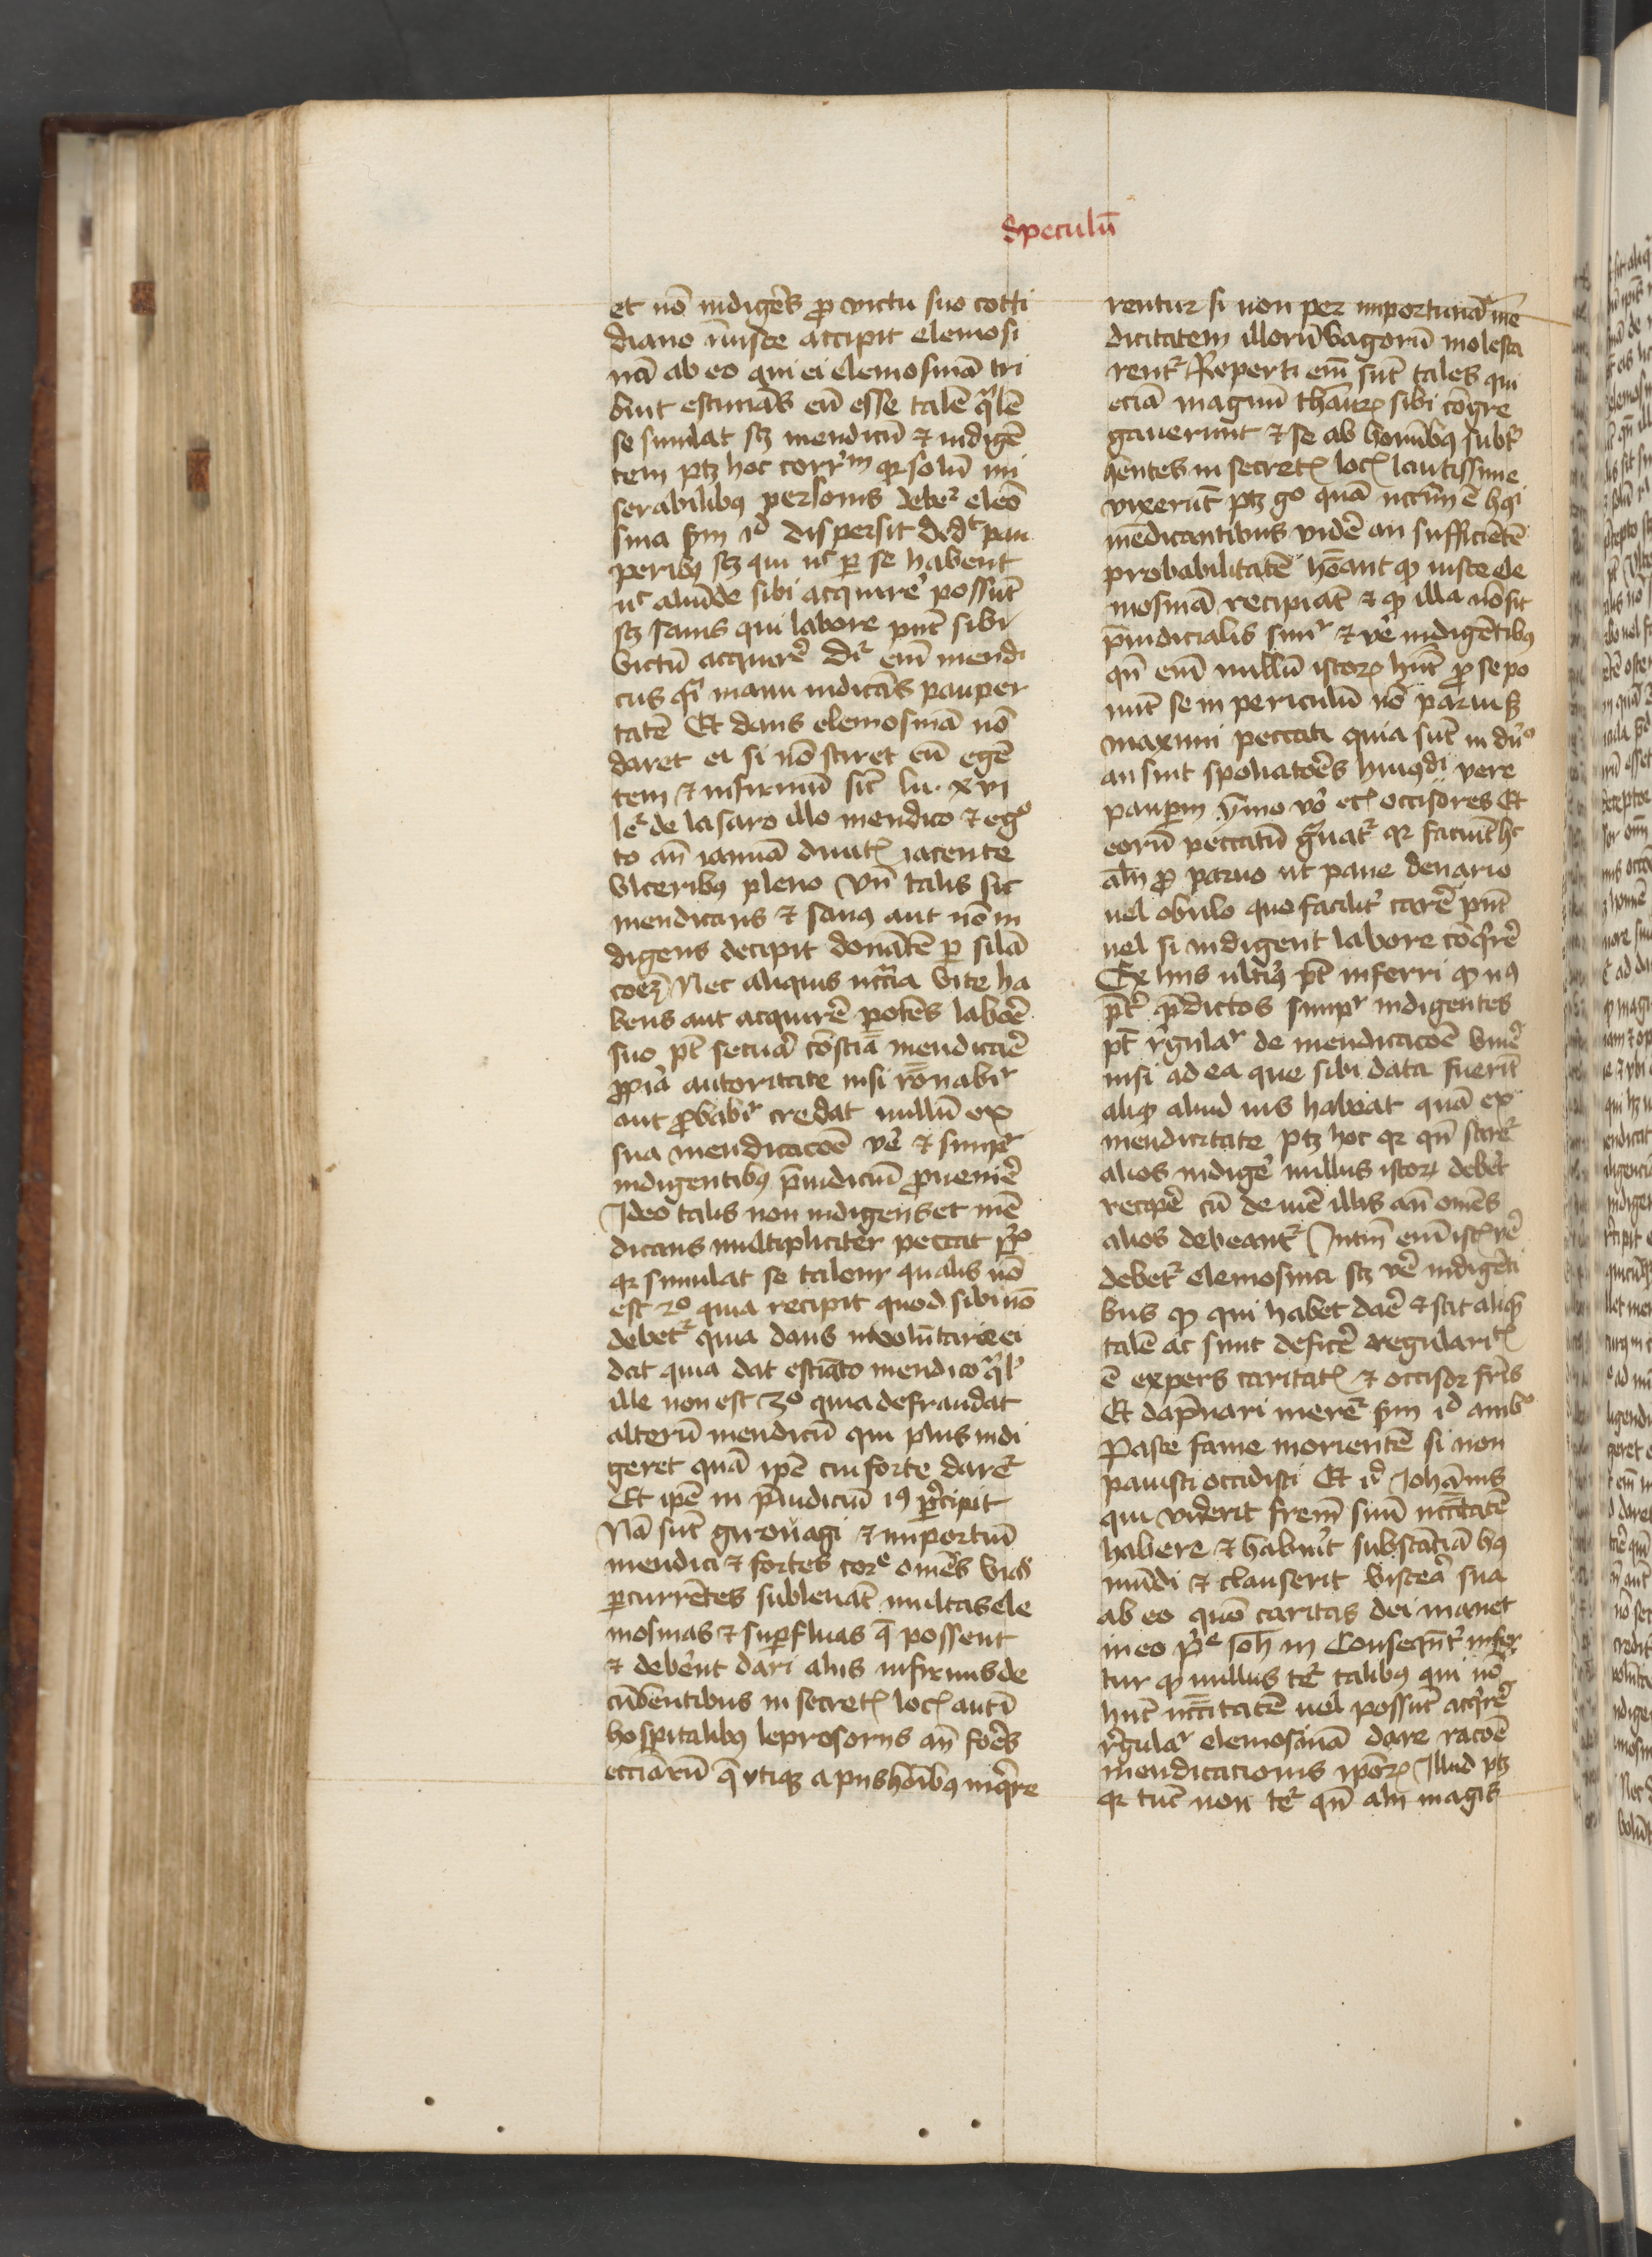 Speculū
et nō indigēs ꝓ victu suo cotti
diano iniuste accipit elemosi
nā ab eo qui ei elemosinā tri
buit estimās eū esse talē qͣlē
se simulat sꝫ mendicū ⁊ indigē
tem ptꝫ hoc corrʳm qꝛ solū mi
serabilibꝰ personis debeʳ eleo
sina sm̄ id dispersit dedit pau
peribꝰ sꝫ qui nc̄ ꝑ se habent
nc̄ aliūde sibi acquirē possūt
sꝫ sanis qui labore pn̄t sibi
victū acquirē Dʳ em̄ mendi
cus qͣi manu indicās pauper
tatē Et dans elemosinā nō
daret ei si nō sciret eū egē
tem ⁊ infirmū sic̄ lu. xvi
leʳ de lasaro illo mendico ⁊ egͦ
to an̄ ianuā diuitꝭ iacente
vlceribꝰ pleno Vn̄ talis sic
mendicans ⁊ sanꝰ aut nō in
digens decipit donātē ꝑ silā
coēꝫ Nec aliquis nccͣia vite ha
bens aut acquirē potēs laboē
suo pt̄ secuā cōstiā mendicaē
ꝓpiā autoritate nisi rōnabiʳ
aut ꝓbabiʳ credat nullū ex
sua mendicacōe vē ⁊ simpʳ
indigentibꝰ p̄iudiciū ꝓuenirē
Ideo talis non indigens et mē
dicans multipliciter peccat pͦ
qꝛ simulat se talem qualis nō
est 2º quia recipit quod sibi nō
debetʳ quia dans inuolūtarie ei
dat quia dat estiato mendico qͣlʳ
ille non est 3º quia defraudat
alterū mendicū qui plus indi
geret quā ipē cui forte dareʳ
Et ipē in p̄iudiciū iꝰ p̄cipit
Nā sūt girouagi ⁊ importūi
mendici ⁊ fortes corꝑe omēs vias
ꝑcurrētes subleuāt multas ele
mosinas ⁊ suꝑfluas q̄ possent
⁊ debēnt dari aliis infirmis de
cūbentibus in secretꝭ locꝭ aut ī
hospitalibꝰ leprosoriis an̄ foēs
eccīarū q̄ vtiqꝫ a piis hōibꝰ inqͥrē
rentur si non per importunā mē
dicitatem illorū vagorū molesta
rentʳ Reperti em̄ sūt tales qui
eciā magnū thauꝝ sibi cōgre
gauerunt ⁊ se ab hominibꝰ subtʳ
hentes in secretꝭ locꝭ lautissime
vixerūt ptꝫ gͦ quā nccr̄m ē hꝰi
mēdicantibus vidē an sufficiētē
probabilitatē hēant ꝙ iuste ele
mosinā recipiāt ⁊ ꝙ illa nō sit
p̄iudicialis simʳ ⁊ vē indigētibꝰ
qn̄ em̄ nullū istoꝝ hn̄t ꝓ se po
nūt se in periculū nō parui sꝫ
maximi peccati quia sūt in duͦ
an sint spoliatoēs huiꝰdi vere
pauꝑm ymo vͦ ec̄ occisores Et
eorū peccatū gͣuatʳ qꝛ faciūt hͨ
aln̄ ꝓ paruo ut pane denario
uel obulo quo facilitʳ carē pn̄t
uel si indigent labore cōqͥrē
Ex hiis ultiꝰ pt̄ inferri ꝙ nꝰ
pt̄ p̄dictos simpʳ indigentes
pt̄ r̄gulaʳ de mendicacōe viuē
nisi ad ea que sibi data fuerīt
aliqͦ aliud ius habeat quā ex
mendicitate ptꝫ hoc qꝛ qn̄ stareʳ
alios indigē nullus istoꝝ debet
recipē cū de iuē illis an̄ omēs
alios debeantʳ Intm̄ em̄ istꝭ rē
debetʳ elemosina sꝫ vē indigēti
bus ꝙ qui habet daē ⁊ scit aliqͣ
talē ac sunt deficē regularitꝭ
ē expers caritatꝭ ⁊ occisor frīs
Et dāpnari merēʳ sm̄ id ambͦ
Pasce fame morientē si non
pauisti occidisti Et id Johānis
qui viderit frēm suū nccītatē
habere ⁊ habuit substāciā hꝰ
mūdi ⁊ clauserit viscēa sua
ab eo quō caritas dei manet
in eo pͥͤ Joh iii Conseqn̄tʳ infer
tur ꝙ nullus teʳ talibꝰ qui nō
hn̄t nccītatē uel possūt acqͥrē
r̄gulaʳ elemosinā dare racōe
mendicationis ipōꝝ Illud ptꝫ
qꝛ tūc non teʳ qn̄ aln̄ magis